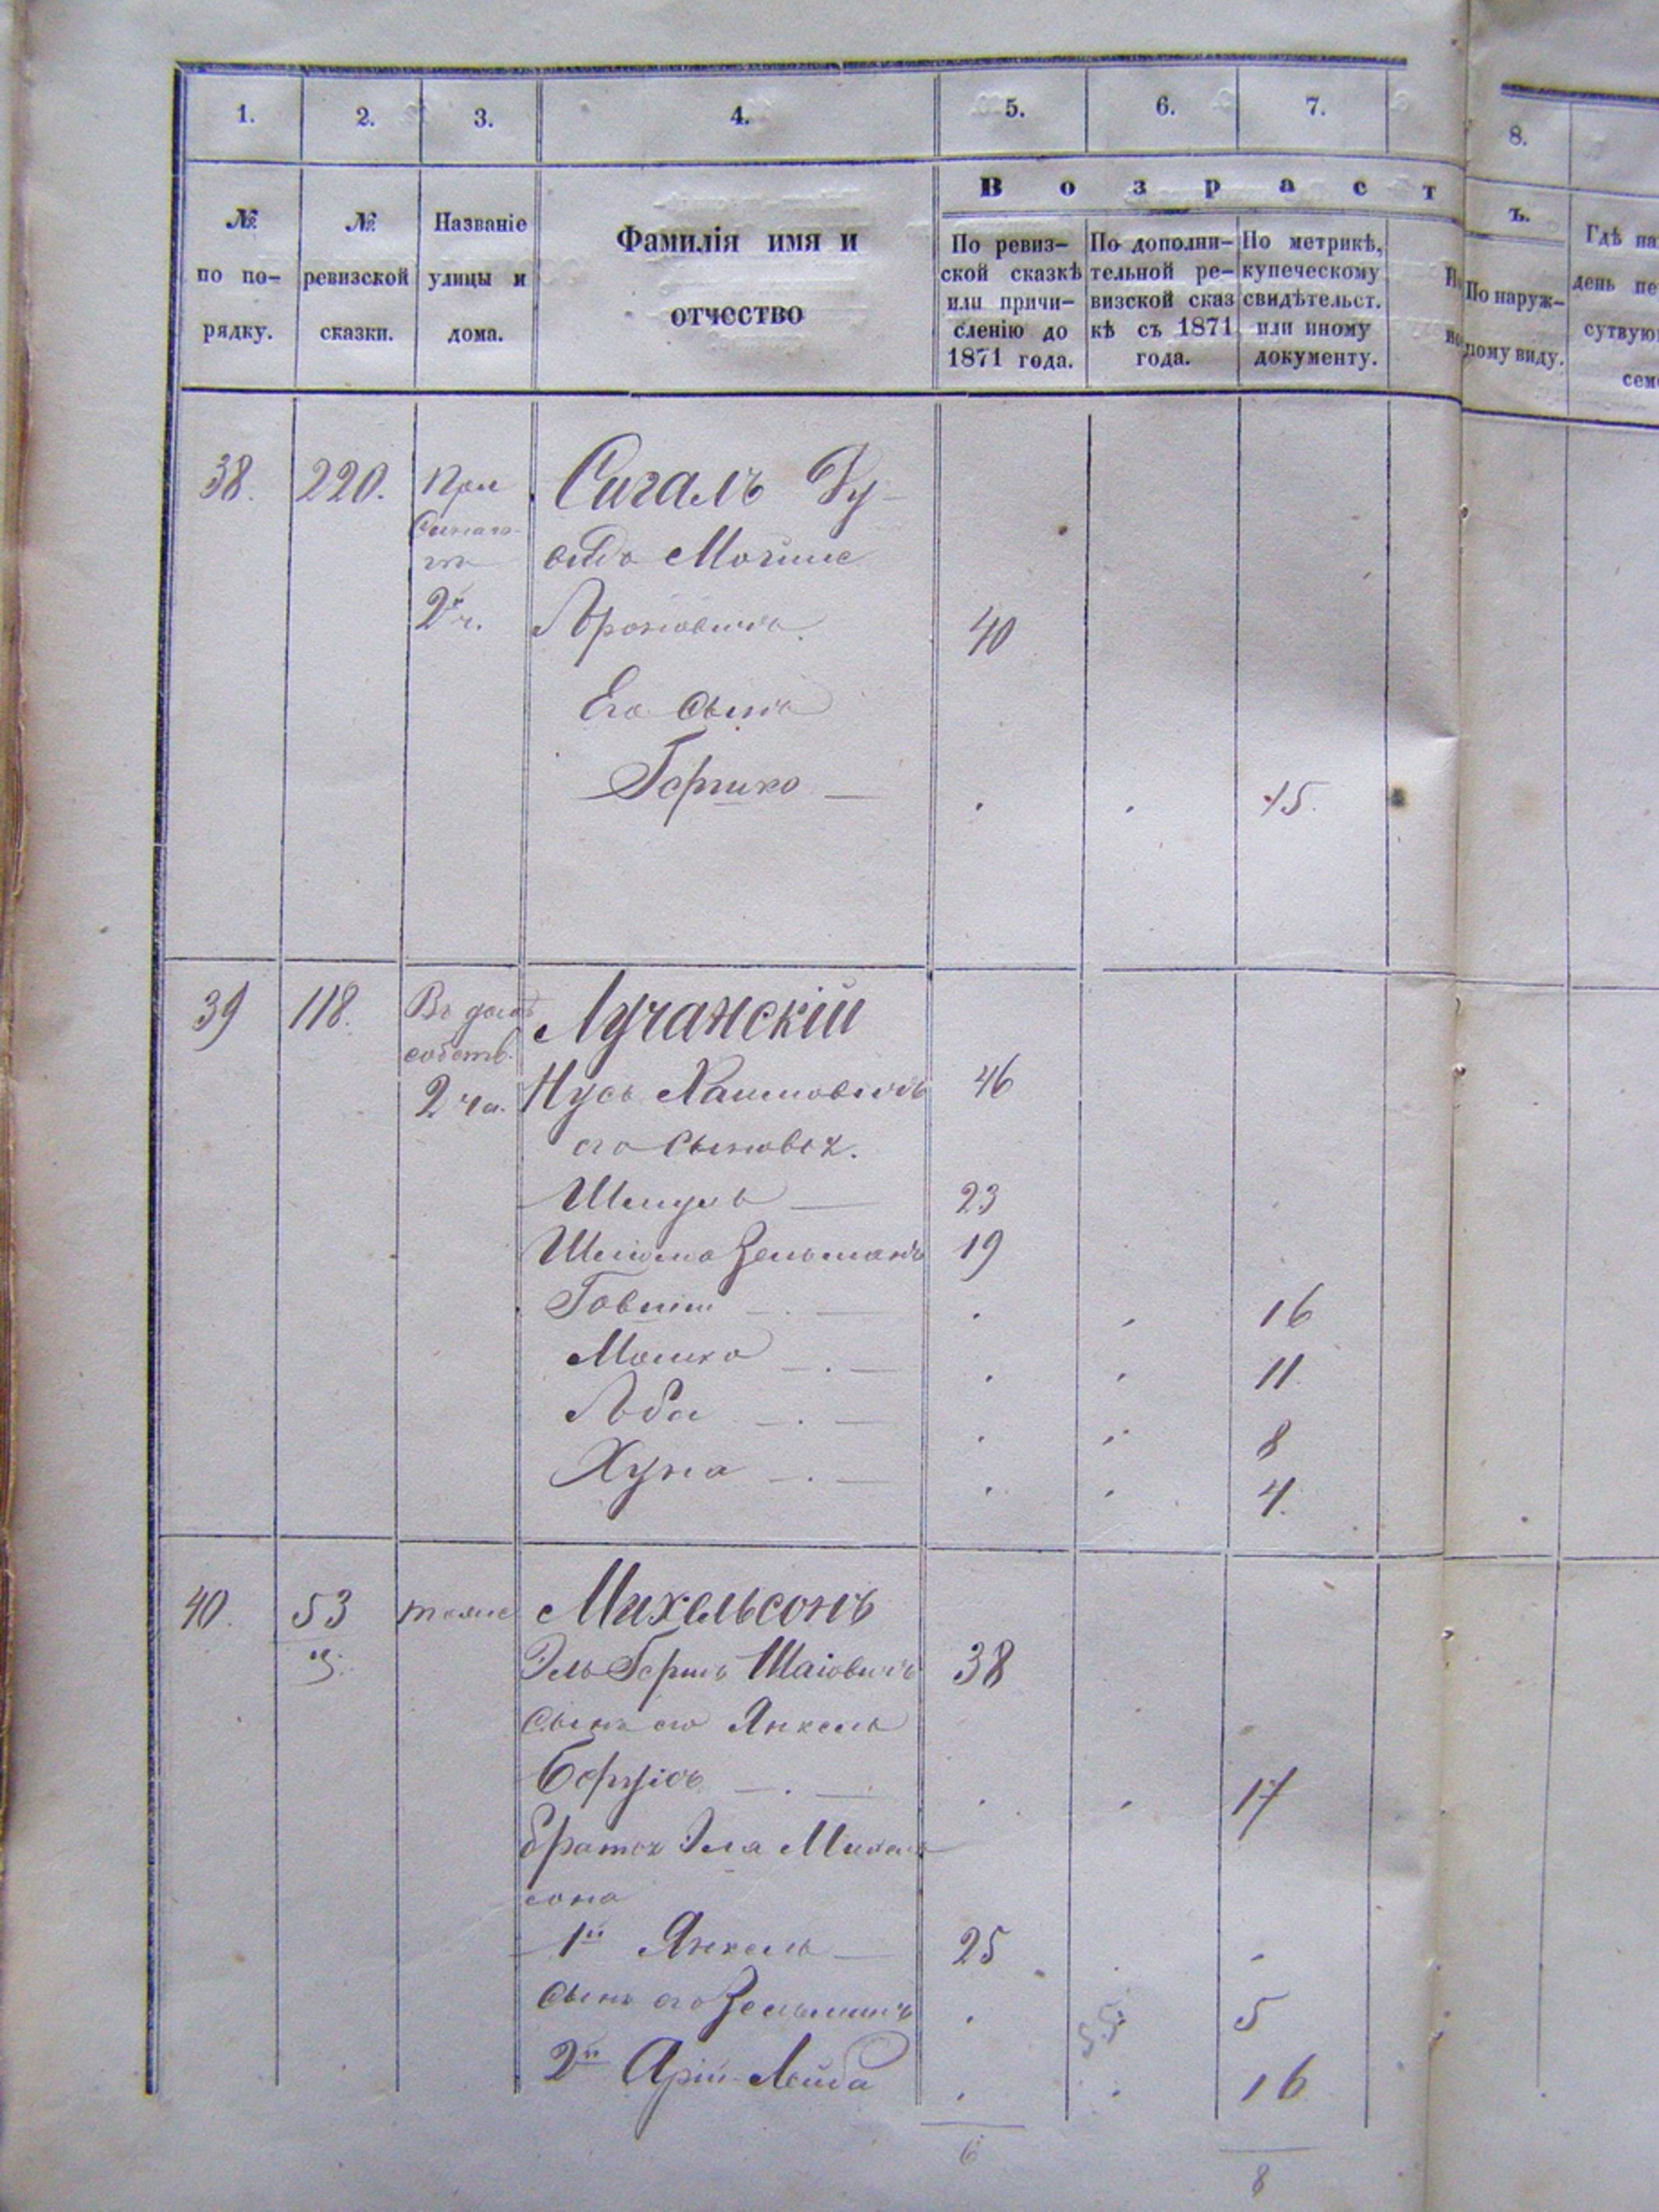 1. 2. 3. 4. 5. 6. 7. 8.
№ по по-рядку.
№ ревизской сказки.
Названіе улицы и дома.
Фамилія имя и
отчество
Возраст
ъ.
По ревиз-
ской сказкѣ
или причи-
сленію до
1871 года.
По дополни-
тельной ре-
визской сказ
кѣ съ 1871
года.
По метрикѣ,
купеческому
свидѣтельст.
или иному
документу.
По наруж-
ному виду.
Гдѣ на
день пе
сутвую
сем
38. 220. При Сигалъ Ду-
Синаго-
гѣ видъ Мойше
2й ч. Ароновичъ. 40
Его сынъ
Гершко — 15.
39 118. Въ домѣ Лучанскій
собств.
2 ча. Нусь Хаимовичъ 46
его сыновья.
— 23
Шліома Зельманъ 19
Говшіи 16
Мошко 11
Аба 8
Хуна 4.
40. 53 тоже Михельсонъ
Эль Гершъ Шаіовичъ 38
Сынъ его Янкель
17
братья Эля Михель
сона
1й Янкель — 25
сынъ его Зельманъ 5
2й Арій-Лейба 16
6 8